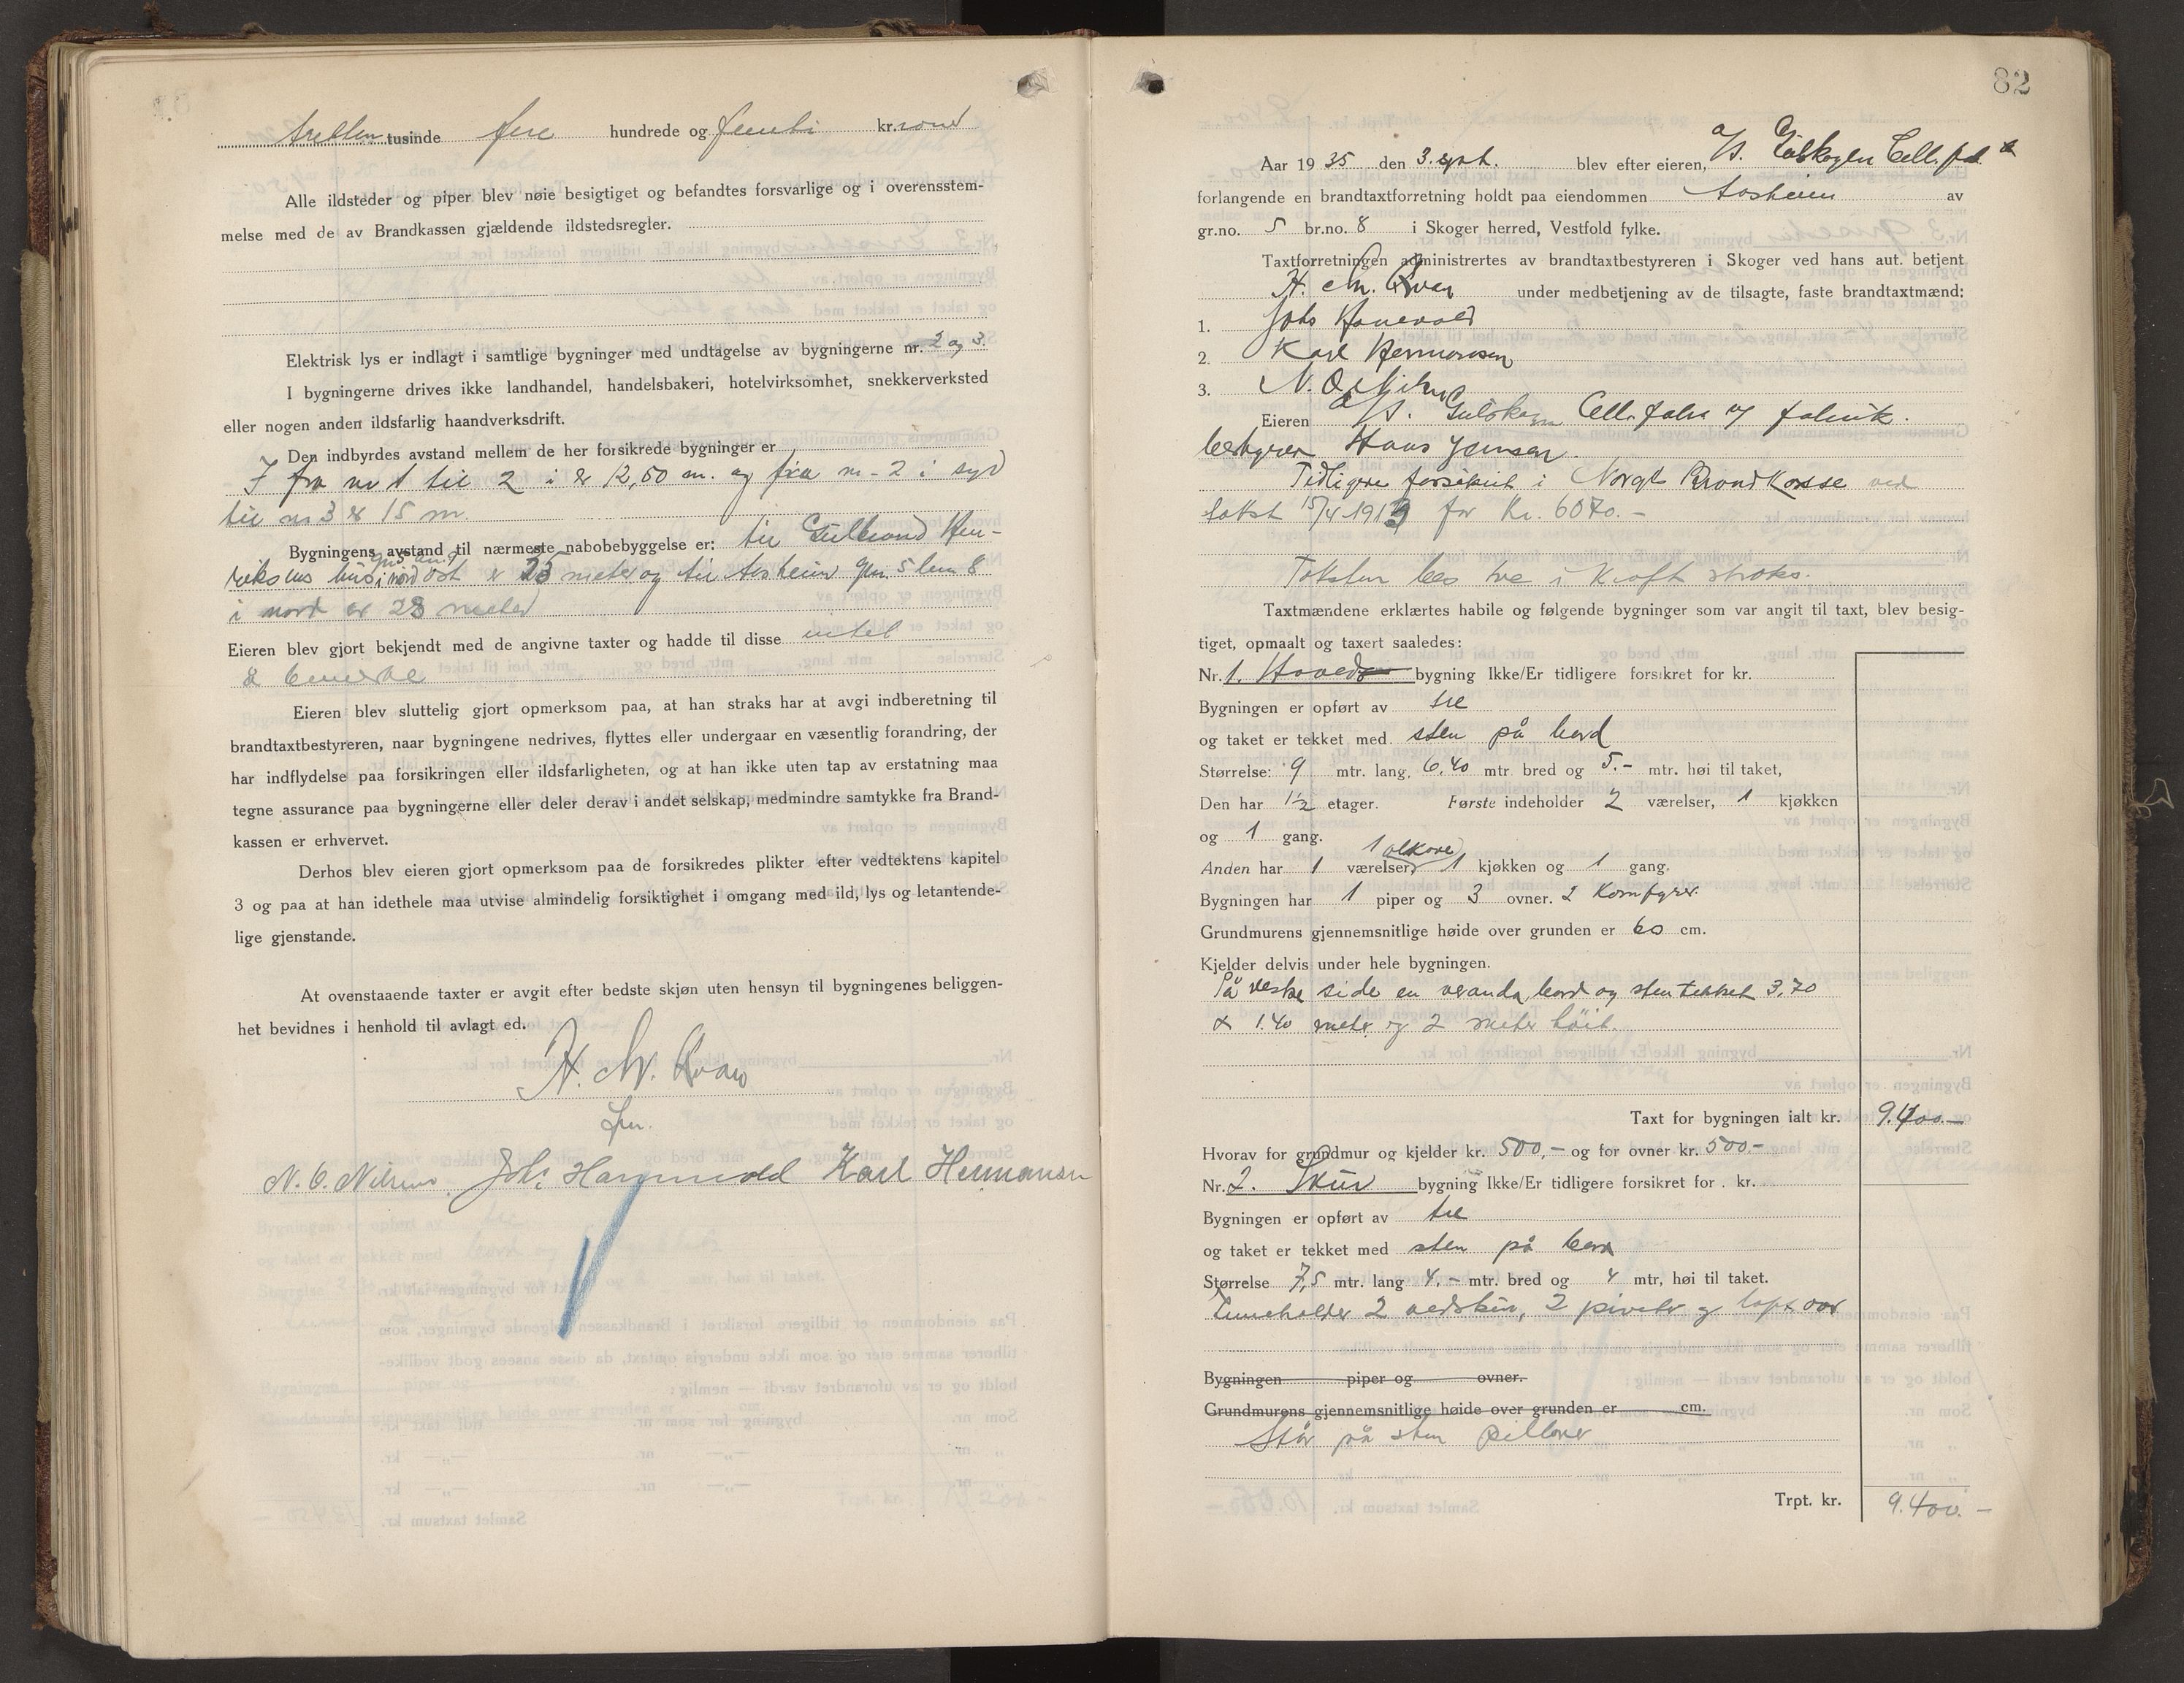 tretten tusinde fire hundrede og femti kr.
Alle ildsteder og piper blev nøie besigtiget og befandtes forsvarlige og i overensstem-
melse med de av Brandkassen gjældende ildstedsregler.
Elektrisk lys er indlagt i samtlige bygninger med undtagelse av bygningerne nr. 2 og 3.
I bygningerne drives ikke landhandel, handelsbakeri, hotelvirksomhet, snekkerverksted
eller nogen anden ildsfarlig haandverksdrift.
Den indbyrdes avstand mellem de her forsikrede bygninger er
fra nr 1 til 2 i er 12,50 m. og fra nr 2 i syd
til nr 3 er 15 m.
Bygningens avstand til nærmeste nabobebyggelse er: til Gulbrand Hen-
riksens hus i nord ost er 25 meter og til Aasheim gn. 5 brn 8
i nord er 28 meter
Eieren blev gjort bekjendt med de angivne taxter og hadde til disse intet
å bemerke
Eieren blev sluttelig gjort opmerksom paa, at han straks har at avgi indberetning til
brandtaxtbestyreren, naar bygningene nedrives, flyttes eller undergaar en væsentlig forandring, der
har indflydelse paa forsikringen eller ildsfarligheten, og at han ikke uten tap av erstatning maa
tegne assurance paa bygningerne eller deler derav i andet selskap, medmindre samtykke fra Brand-
kassen er erhvervet.
Derhos blev eieren gjort opmerksom paa de forsikredes plikter efter vedtektens kapitel
3 og paa at han idethele maa utvise almindelig forsiktighet i omgang med ild, lys og letantende-
lige gjenstande.
At ovenstaaende taxter er avgit efter bedste skjøn uten hensyn til bygningenes beliggen-
het bevidnes i henhold til avlagt ed.
H. M. Qvan
N. O. Nilsen Johs Hanevold Karl Hermansen
82
Aar 1935 den 3. sept. blev efter eieren, A/S. Gulskogen Cell. fab.
forlangende en brandtaxtforretning holdt paa eiendommen Aasheim av
gr.no. 5 br.no. 8 i Skoger herred, Vestfold fylke.
Taxtforretningen administrertes av brandtaxtbestyreren i Skoger ved hans aut. betjent
H. M. Qvan under medbetjening av de tilsagte, faste brandtaxtmænd:
1. Johs Hanevold
2. Karl Hermansen
3. N. O. Nilsen
Eieren A/S. Gulskogen Cell. fabr og fabrik.
bestyrer Hans Jensen.
Tidligere forsikret i Norges Brandkasse ved
takst 15/4 1913 for Kr. 6070.-
Taksten bes tre i kraft straks.
Taxtmændene erklærtes habile og følgende bygninger som var angit til taxt, blev besig-
tiget, opmaalt og taxert saaledes:
Nr. 1. Hoved bygning Ikke/Er tidligere forsikret for kr.
Bygningen er opført av tre
og taket er tekket med sten på bord
Størrelse: 9 mtr. lang, 6,40 mtr. bred og 5.- mtr. høi til taket,
Den har 1½ etager. Første indeholder 2 værelser, 1 kjøkken
og 1 gang.
1 alkove
Anden har 1 værelser, 1 kjøkken og 1 gang.
Bygningen har 1 piper og 3 ovner. 2 Komfyrer
Grundmurens gjennemsnitlige høide over grunden er 60 cm.
Kjelder delvis under hele bygningen.
På vestre side en veranda, bord og sten tekket 3,70
x 1.40 meter og 2 meter höit.
Taxt for bygningen ialt kr. 9.400.-
Hvorav for grundmur og kjelder kr. 500,- og for ovner kr. 500-
Nr. 2. Skur bygning Ikke/Er tidligere forsikret for kr.
Bygningen er opført av tre
og taket er tekket med sten på bord
Størrelse 7,5 mtr. lang 4.- mtr. bred og 4 mtr, høi til taket.
Inneholder 2 vedskur, 2 priveter og loft over
Bygningen piper og ovner.
Grundmurens gjennemsnitlige høide over grunden er cm.
Står på sten pillarer
Trpt. kr. 9.400.-